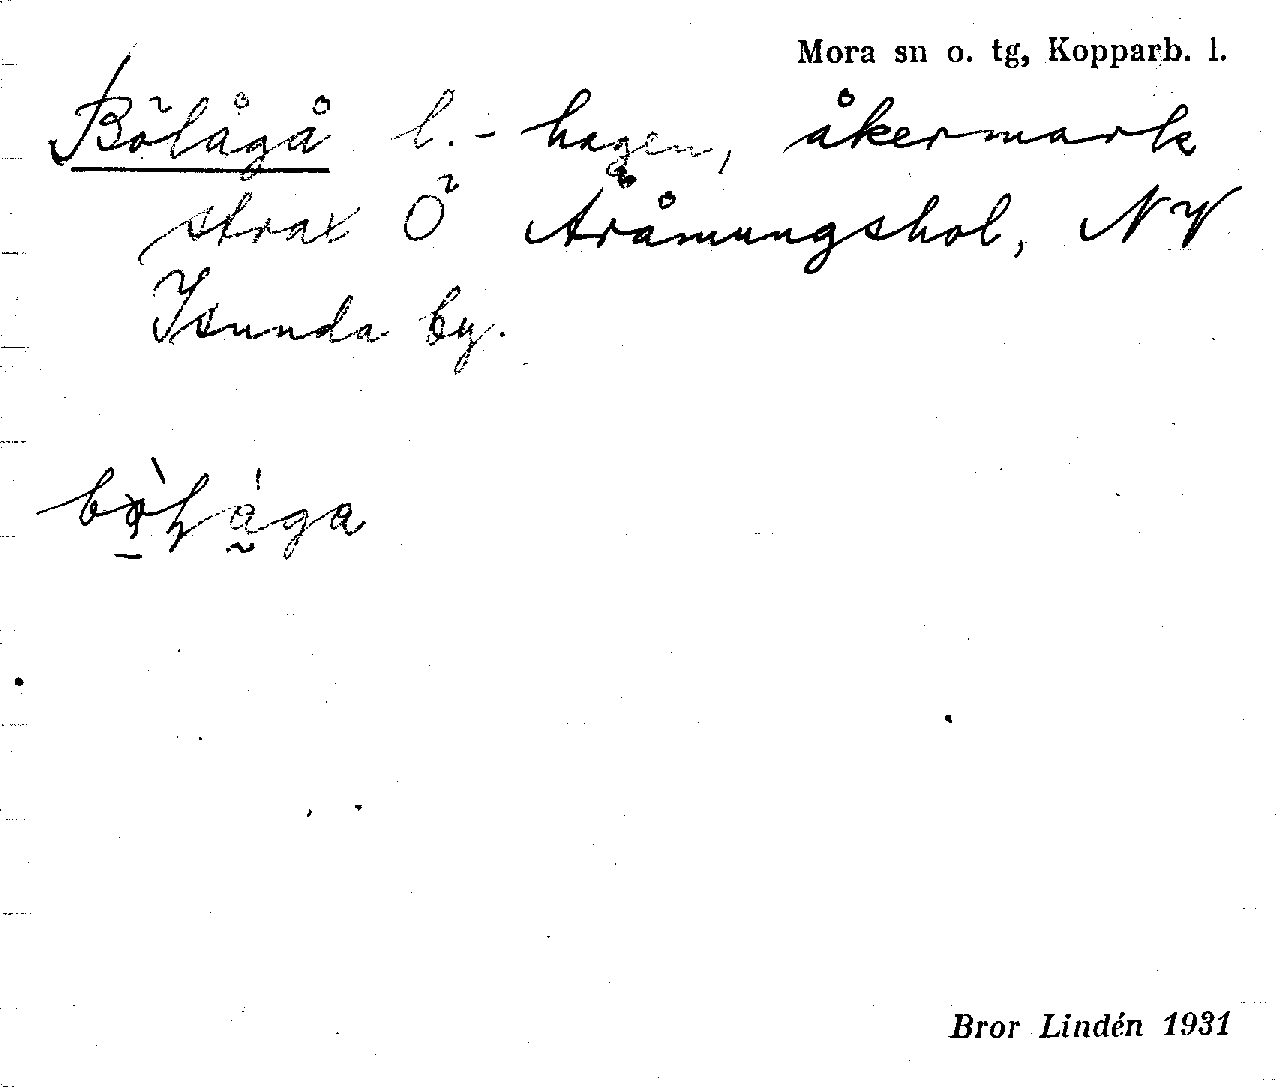 Mora sn o. tg, Kopparb. l.
Bölågå l. -hagen, åkermark
strax Ö Åråmungshol, NV
Isunda by.
Bror Lindén 1931